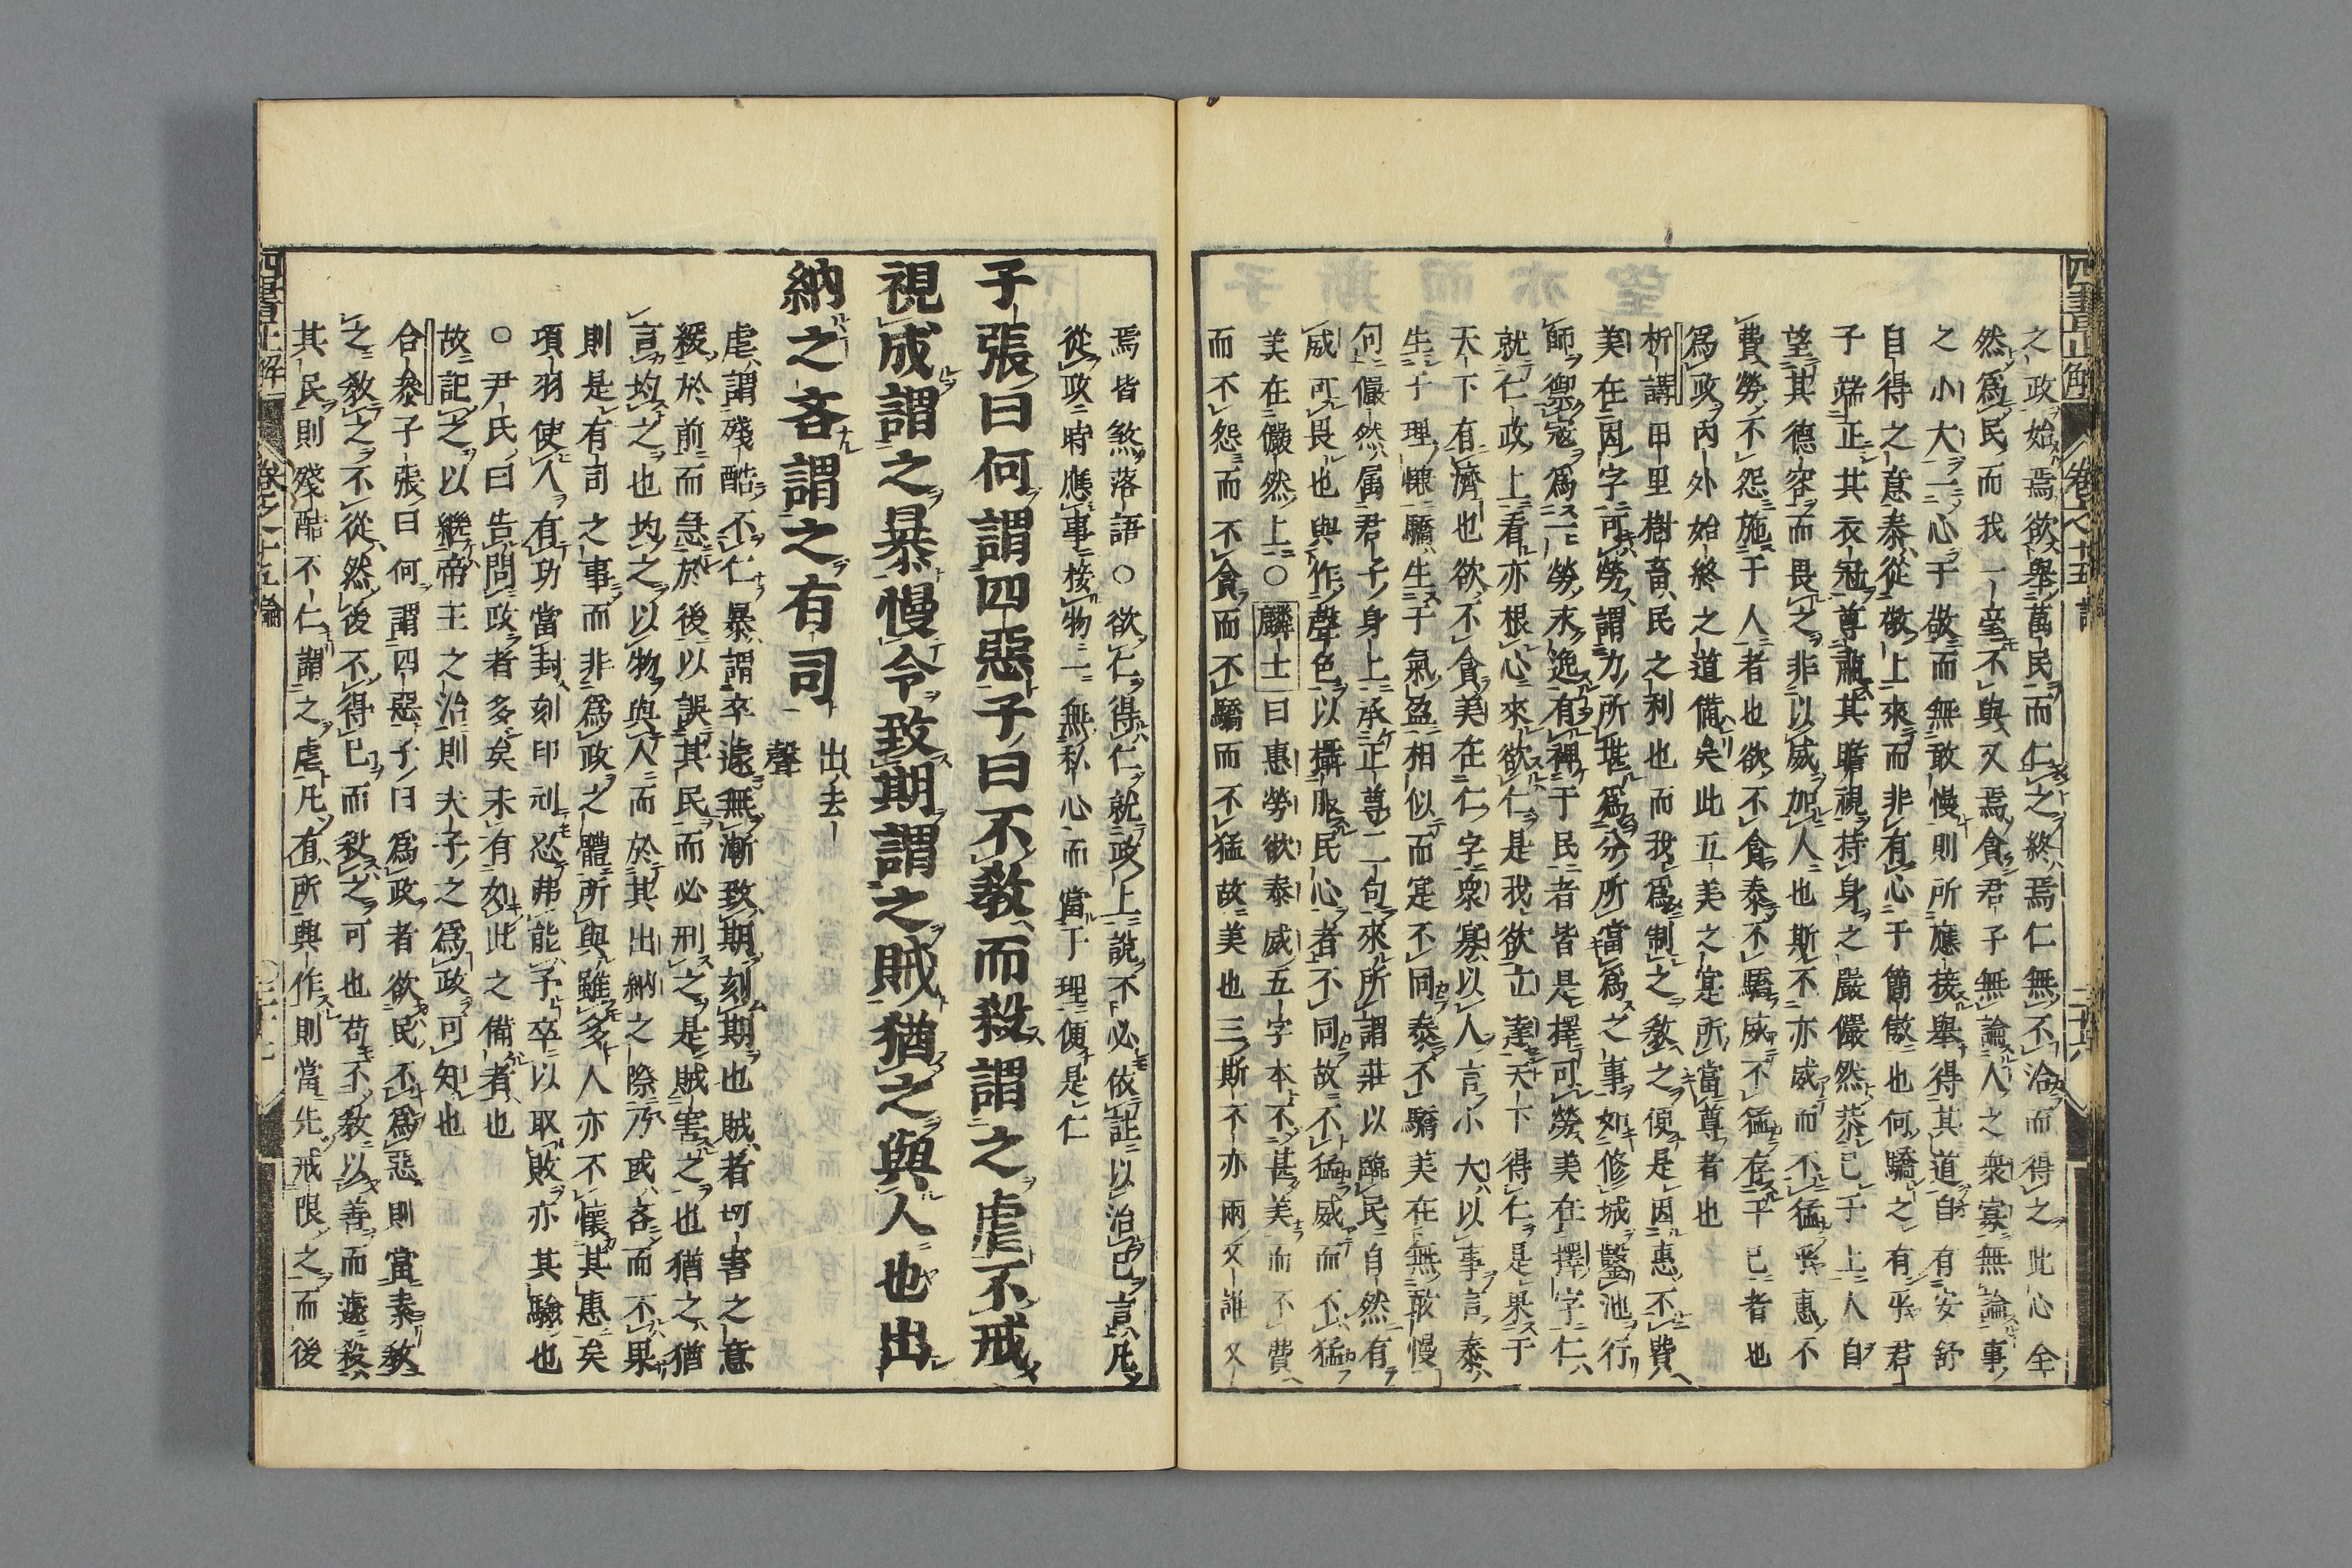 四書正解
卷之十五論
二十六
之政始焉欲舉萬民而仁之終焉仁無不洽而得之此心全
然爲民而我一毫不與又焉貪君子無論人之衆寡無論事
之小大一心于敬而無敢慢則所應接舉得其道自有安舒
自得之意泰從敬上來而非有心于簡傲也何驕之有乎君
子端正其衣冠尊肅其瞻視持身之嚴儼然恭己于上人自
望其德容而畏之非以威加人也斯不亦威而不猛乎惠不
費勞不怨施于人者也欲不貪泰不驕威不猛存乎己者也
爲政内外始終之道備矣此五美之寔所當尊者也
析講田里樹畜民之利也而我爲制之教之便是因惠不費
美在因字可勞謂力所堪爲分所當爲之事如修城鑿池行
師禦寇爲一勞永逸有裨于民者皆是擇可勞美在擇字仁
就仁政上看亦根心來欲仁是我欲立達天下得仁是果于
天下有濟也欲不貪美在仁字衆寡以人言小大以事言泰
生于理慊驕生于氣盈相似而寔不同泰不驕美在無敢慢
句儼然属君子身上承正尊二句來所謂莊以臨民自然有
威可畏也與作聲色以攝服民心者不同故不猛威而不猛
美在儼然上○麟士曰惠勞欲泰威五字本不甚美而不費
而不怨而不貪而不驕而不猛故美也三斯不亦兩又誰又
焉皆煞落語○欲仁得仁就政上說不必依註以治己言凡
從政時應事接物一無私心而當于理便是仁
子張曰何謂四惡子曰不教而殺謂之虐不戒
視成謂之暴慢令致期謂之賊猶之與人也出
納之吝謂之有司
出去
聲
虐謂殘酷不仁暴謂卒遽無漸致期刻期也賊者切害之意
緩於前而急於後以誤其民而必刑之是賊害之也猶之猶
言均之也均之以物與人而於其出納之際乃或吝而不果
則是有司之事而非爲政之體所與雖多人亦不懷其惠矣
項羽使人有功當封刻印刓忍弗能予卒以取敗亦其驗也
○尹氏曰告問政者多矣未有如此之備者也
故記之以繼帝王之治則夫子之爲政可知也
合參子張曰何謂四惡子曰爲政者欲民不爲惡則當素教
之教之不從然後不得已而殺之可也苟不教以善而遽殺
其民則殘酷不仁謂之虐凡有所興作則當先戒限之而後
四書正解
卷之十五論
二十七